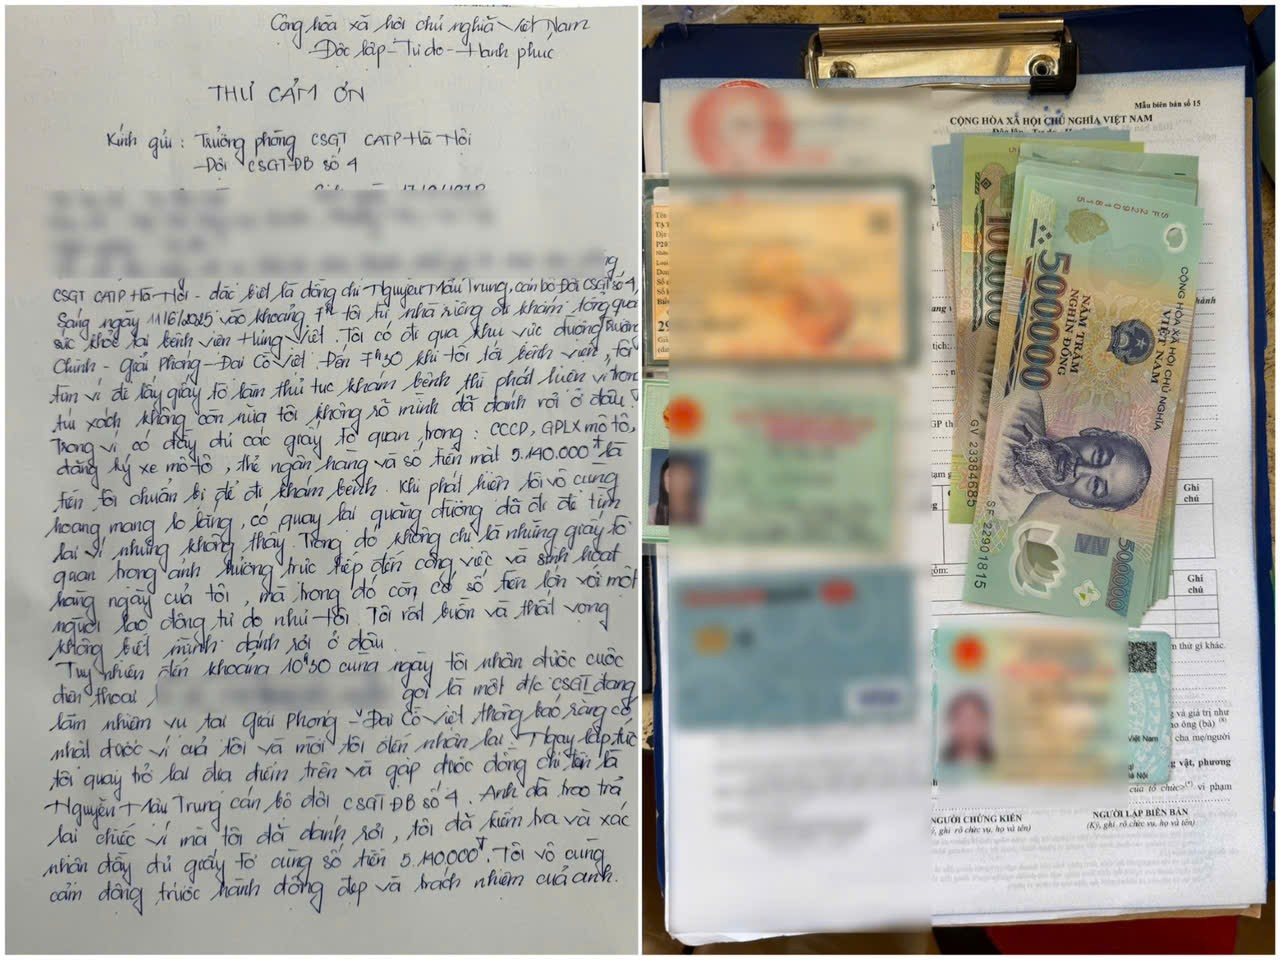 Cộng hòa xã hội chủ nghĩa Việt Nam
Độc lập - Tự do - Hạnh phúc
THƯ CẢM ƠN
Kính gửi : Trưởng phòng CSGT CATP Hà Nội
- Đội CSGT ĐB số 4
CSGT CATP Hà Nội - đặc biệt là đồng chí Nguyễn Mậu Trung, cán bộ Đội CSGT số 4,
Sáng ngày 11/6/2025 vào khoảng 7h tôi từ nhà riêng đi khám tổng quát
sức khỏe tại bệnh viện Hưng Việt. Tôi có đi qua khu vực đường Trường
Chinh - Giải Phóng - Đại Cồ Việt. Đến 7h30 khi tôi tới bệnh viện, tôi
tìm ví để lấy giấy tờ làm thủ tục khám bệnh thì phát hiện ví trong
túi xách không còn nữa tôi không rõ mình đã đánh rơi ở đâu.
Trong ví có đầy đủ các giấy tờ quan trọng : CCCD, GPLX mô tô,
đăng ký xe mô tô, thẻ ngân hàng và số tiền mặt 5.140.000đ là
tiền tôi chuẩn bị để đi khám bệnh. Khi phát hiện tôi vô cùng
hoang mang lo lắng, có quay lại quãng đường đã đi để tìm
lại ví nhưng không thấy. Trong đó không chỉ là những giấy tờ
quan trọng ảnh hưởng trực tiếp đến công việc và sinh hoạt
hàng ngày của tôi, mà trong đó còn có số tiền lớn với một
người lao động tự do như tôi. Tôi rất buồn và thất vọng
không biết mình đánh rơi ở đâu.
Tuy nhiên đến khoảng 10h30 cùng ngày tôi nhận được cuộc
điện thoại gọi là một đ/c CSGT đang
làm nhiệm vụ tại Giải Phóng - Đại Cồ Việt thông báo rằng có
nhặt được ví của tôi và mời tôi đến nhận lại. Ngay lập tức
tôi quay trở lại địa điểm trên và gặp được đồng chí tên là
Nguyễn Mậu Trung cán bộ đội CSGT ĐB số 4. Anh đã trao trả
lại chiếc ví mà tôi đã đánh rơi, tôi đã kiểm tra và xác
nhận đầy đủ giấy tờ cùng số tiền 5.140.000đ. Tôi vô cùng
cảm động trước hành động đẹp và trách nhiệm của anh.
Mẫu biên bản số 15
CỘNG HÒA XÃ HỘI CHỦ NGHĨA VIỆT NAM
CỘNG HÒA XÃ HỘI CHỦ NGHĨA
VIỆT NAM
NĂM TRĂM
NGHÌN ĐỒNG
500000
500000
SF 22901815
SF 22901815
GV 23384685
100000
Ghi
chú
Ghi
chú
gồm:
m thứ gì khác.
g và giá trị như
ho ông (bà) (8)
cha mẹ/người
g vật, phương
của tổ chức>(*) vi phạm
Việt Nam
Hà Nội
NGƯỜI CHỨNG KIẾN
ý, ghi rõ chức vụ, họ và tên)
NGƯỜI LẬP BIÊN BẢN
(Ký, ghi rõ chức vụ, họ và tên)